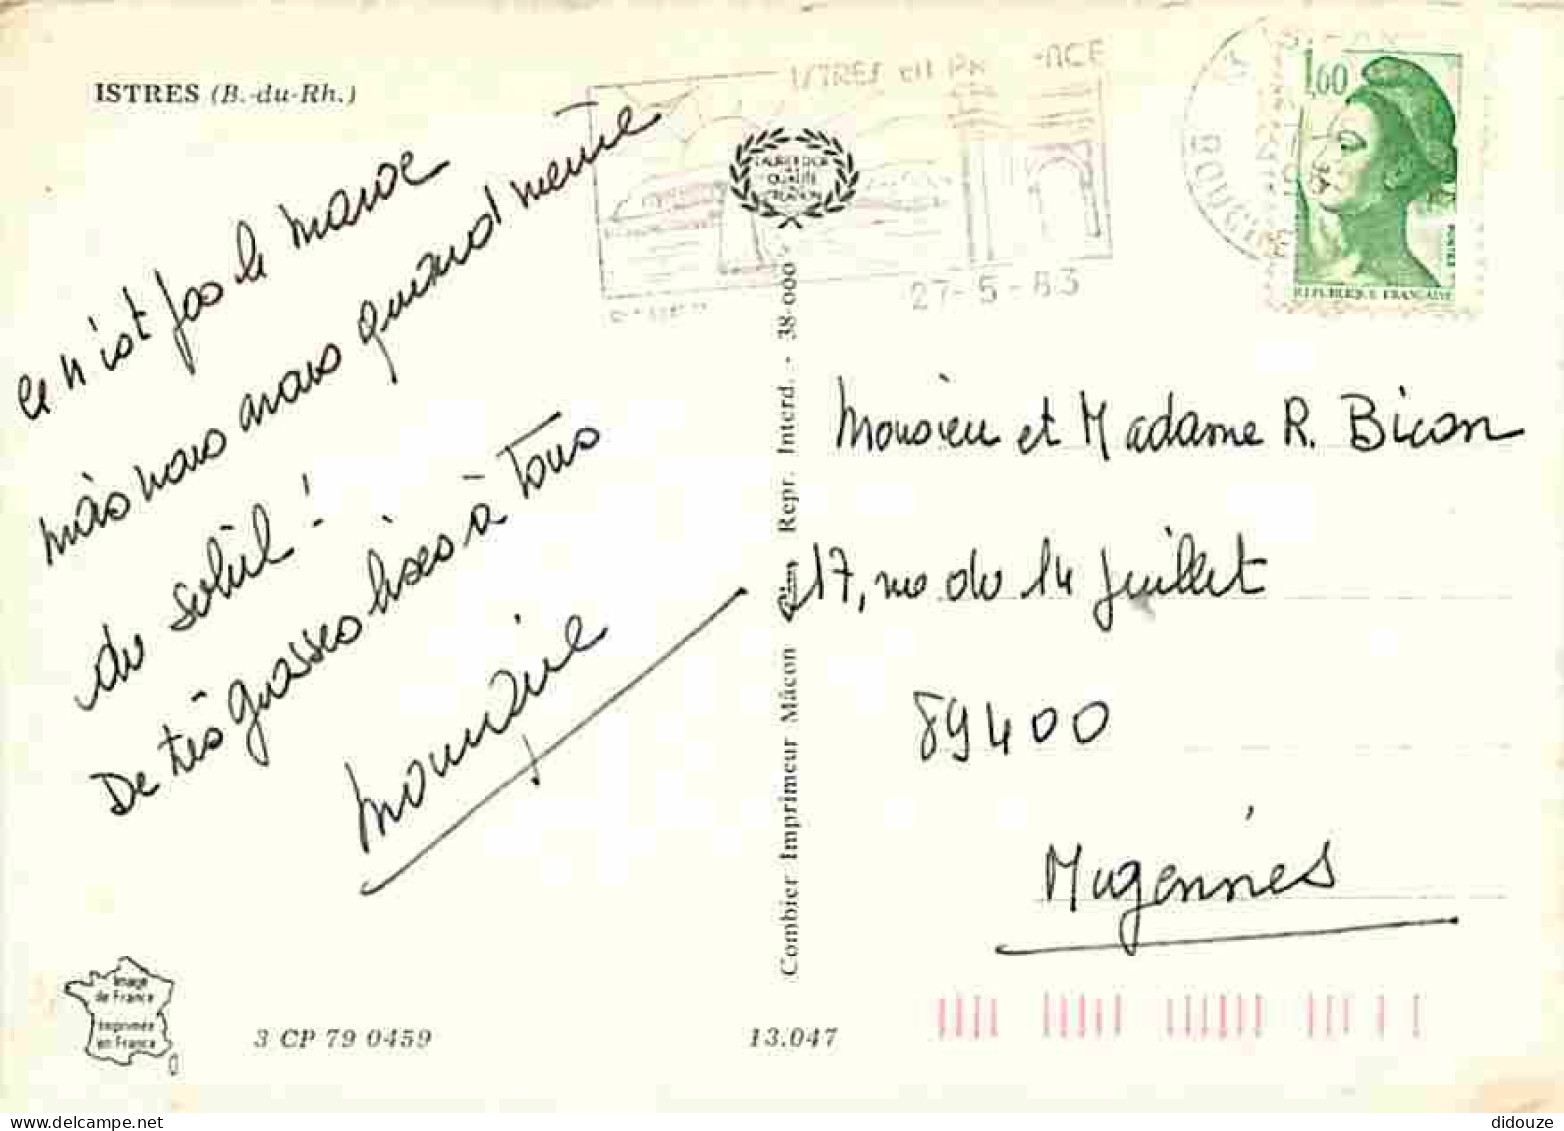 ISTRES (B.-du-Rh.)
ISTRES en PR -NCE
LAURIER D'OR
QUALITÉ
CRÉATION
27-5-83
1,60
POSTES
REPUBLIQUE FRANÇAISE
ce n'est pas le maroc
mais nous avons quand même
du soleil !
De très grosses bises à Tous
Combier Imprimeur Mâcon
Repr. Interd. - 38-000
Monsieur et Madame R. Bicon
17, rue du 14 juillet
89400
Migennes
Image
de France
Imprimée
en France
3 CP 79 0459
13.047
didouze